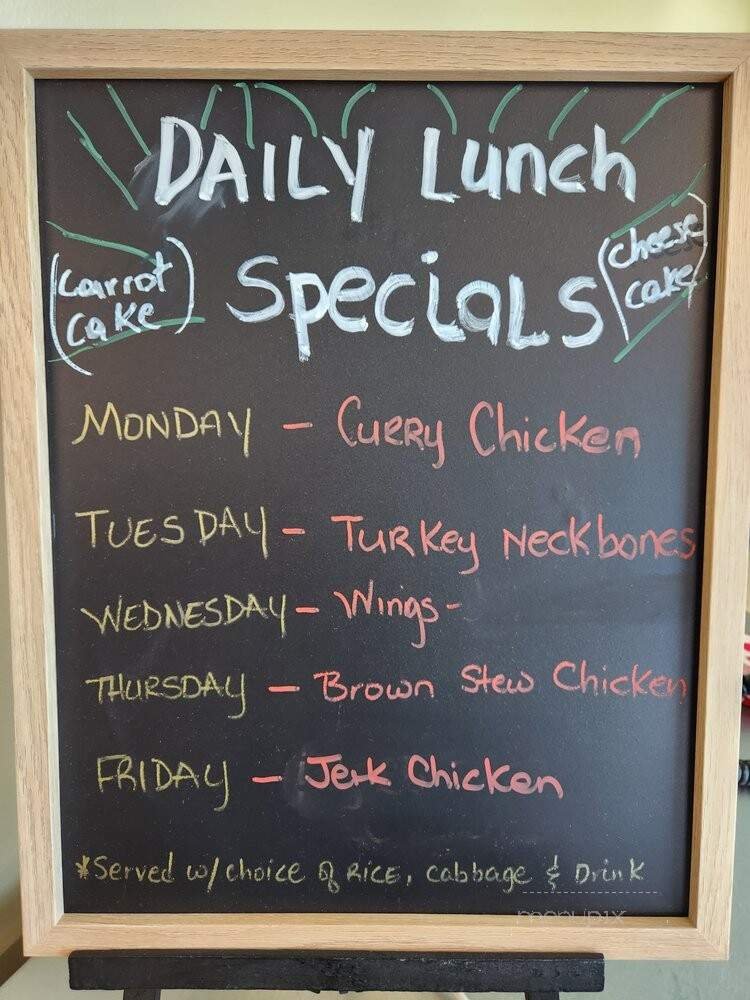 DAILY Lunch
(Carrot Cake)
Specials
(Cheese Cake)
MONDAY - Curry Chicken
TUESDAY - Turkey Neckbones
WEDNESDAY - Wings-
THURSDAY - Brown Stew Chicken
FRIDAY - Jerk Chicken
*Served w/ choice of RICE, cabbage & Drink
menupix